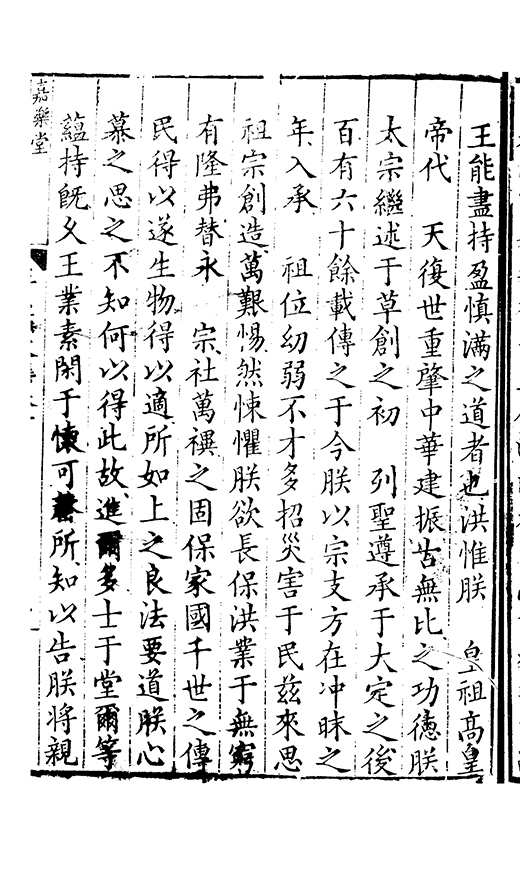 王能盡持盈慎滿之道者也洪惟朕　皇祖高皇
帝代　天復世重肇中華建振古無比之功德朕
太宗繼述于草創之初　列聖遵承于大定之後
百有六十餘載傳之于今朕以宗支方在冲昧之
年入承　祖位幼弱不才多招災害于民兹來思
祖宗創造萬艱惕然悚懼朕欲長保洪業于無窮
有隆弗替永　宗社萬禩之固保家國千世之傳
民得以遂生物得以適所如上之良法要道朕心
慕之思之不知何以得此故進爾多士于堂爾等
藴持旣久王業素閑于懐可罄所知以告朕將親
嘉樂堂